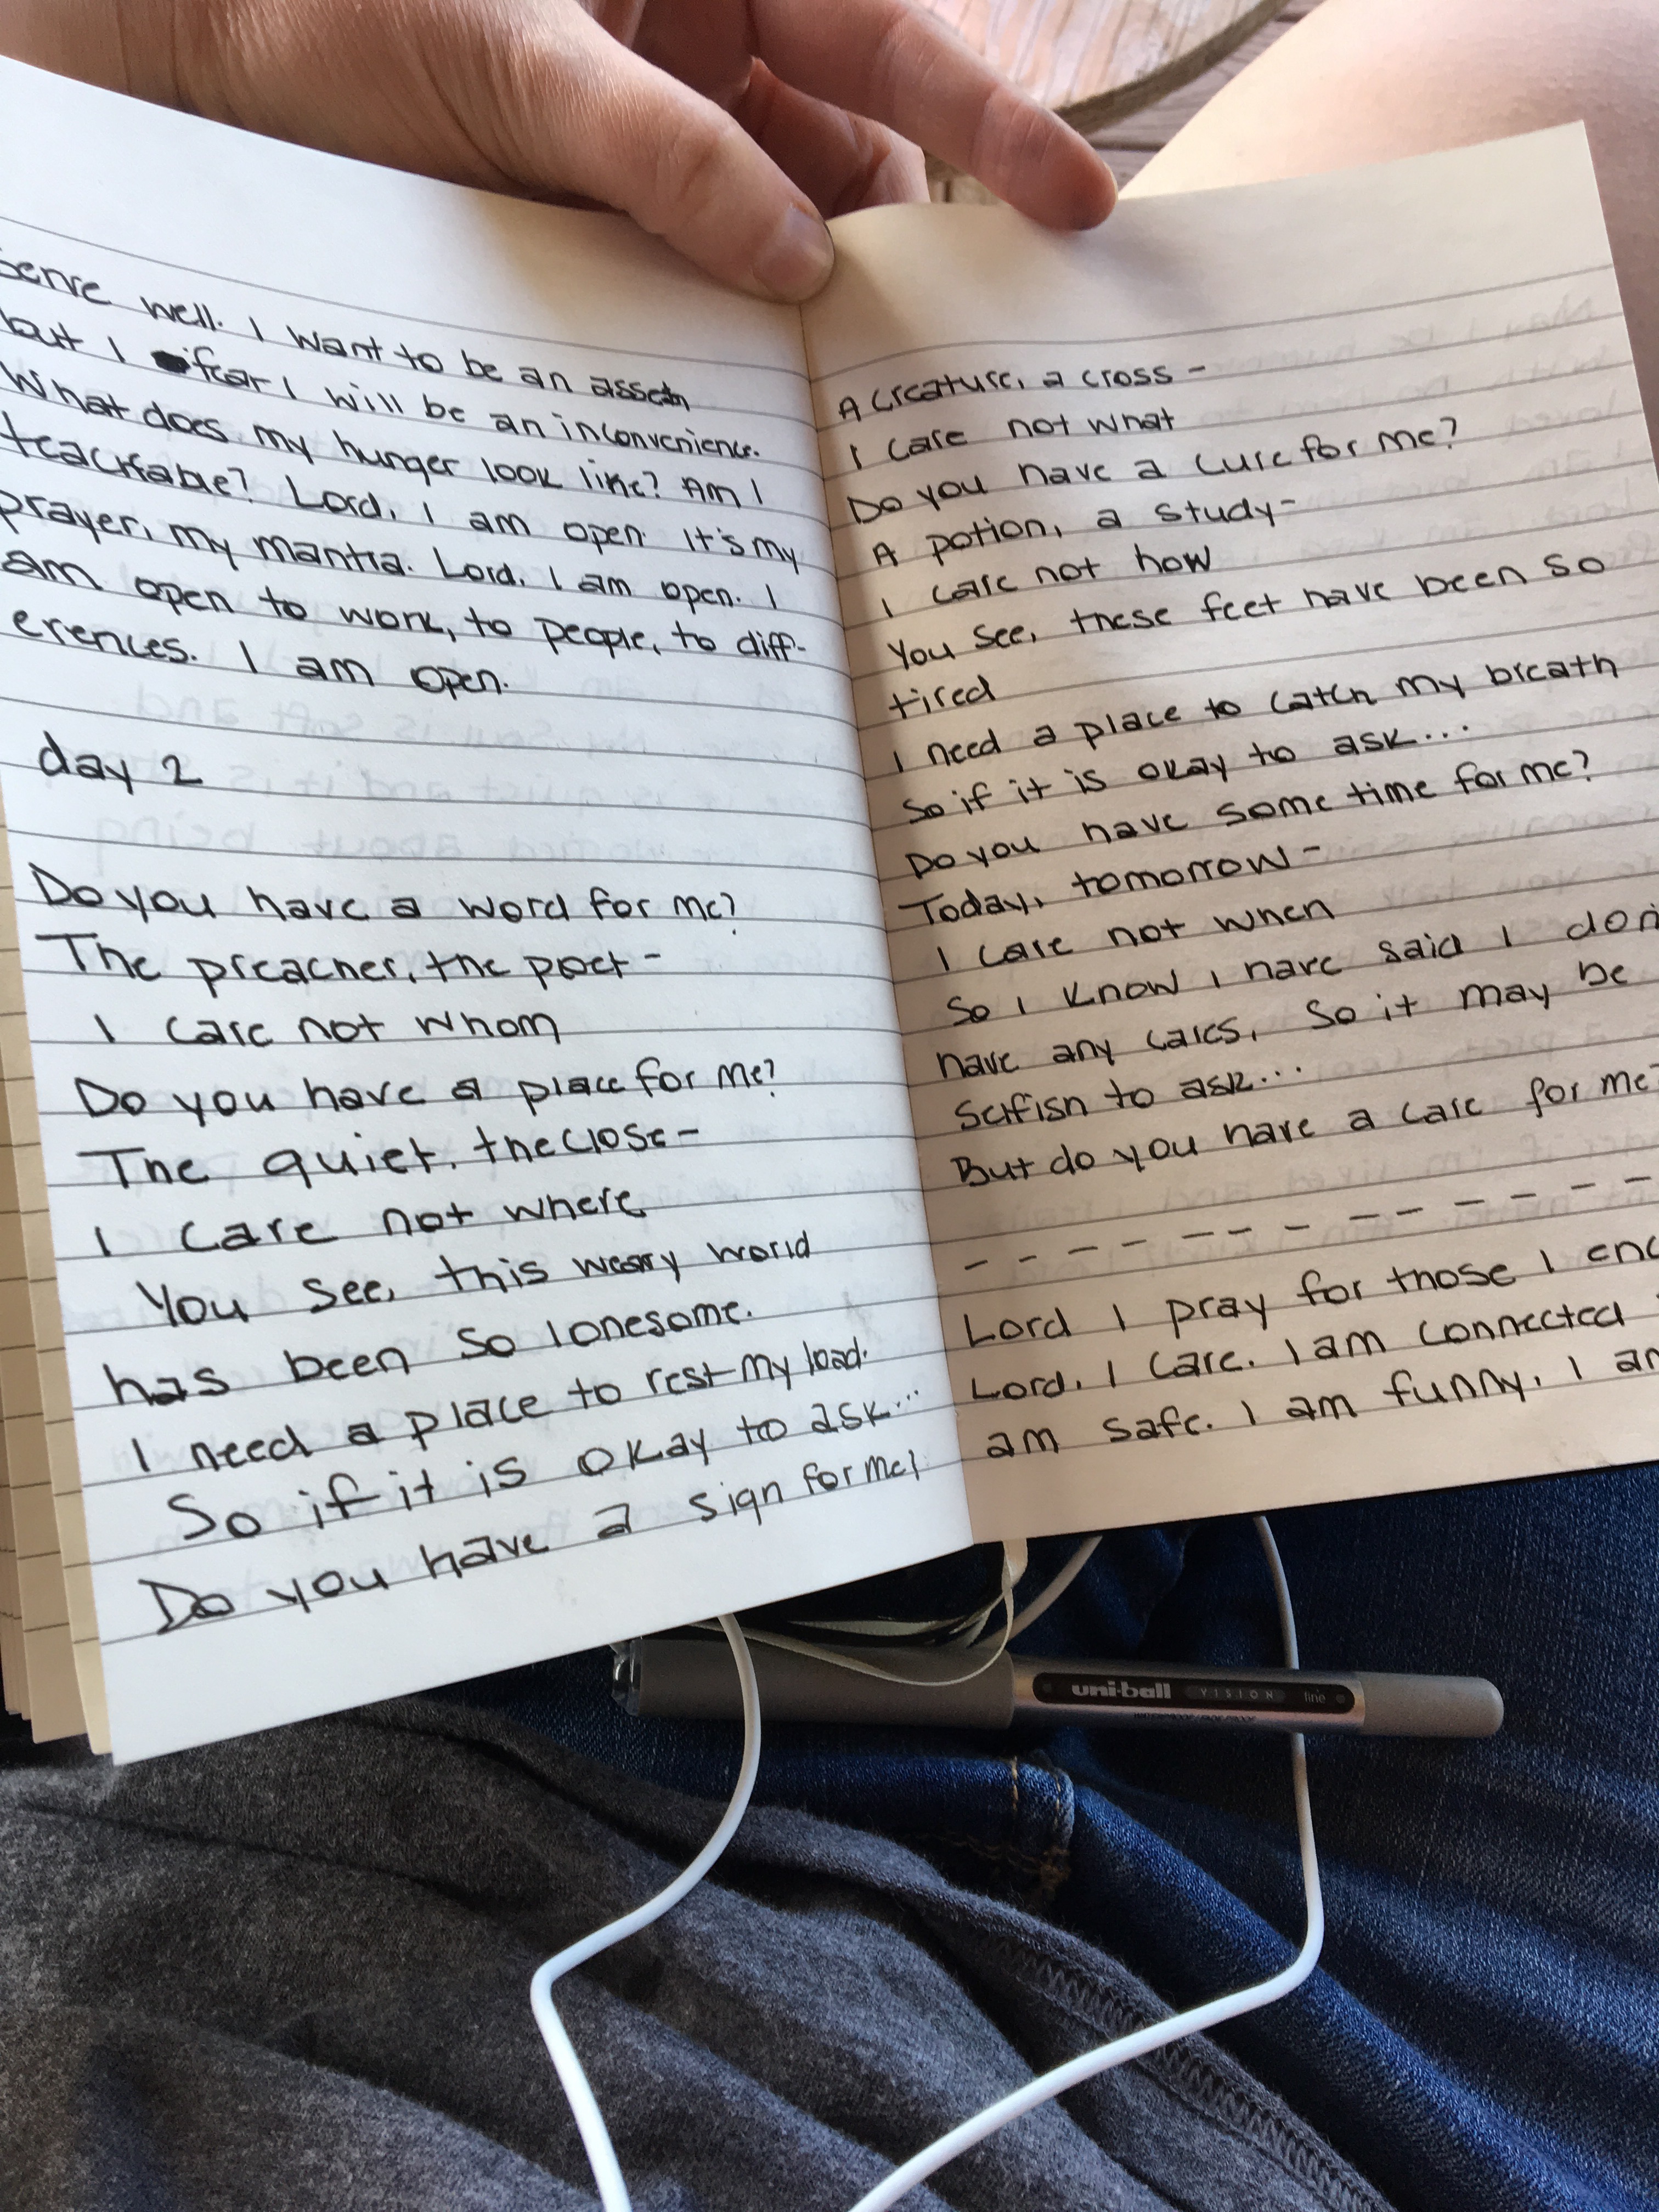 serve well. I want to be an asset
but I fear I will be an inconvenience.
What does my hunger look like? Am I
teachable? Lord, I am open. It's my
prayer, my mantra. Lord, I am open. I
am open to work, to people, to diff-
erences. I am open.
day 2
Do you have a word for me?
The preacher, the poet -
I care not whom
Do you have a place for me?
The quiet, the close -
I care not where
You see, this weary world
has been so lonesome.
I need a place to rest my load.
So if it is okay to ask...
Do you have a sign for me?
A creature, a cross -
I care not what
Do you have a cure for me?
A potion, a study -
I care not how
You see, these feet have been so
tired
I need a place to catch my breath
So if it is okay to ask...
Do you have some time for me?
Today, tomorrow -
I care not when
So I know I have said I don
have any cares, so it may be
selfish to ask...
But do you have a care for me?
Lord I pray for those I enc
Lord, I care. I am connected
am safe. I am funny. I am
uni-ball VISION fine